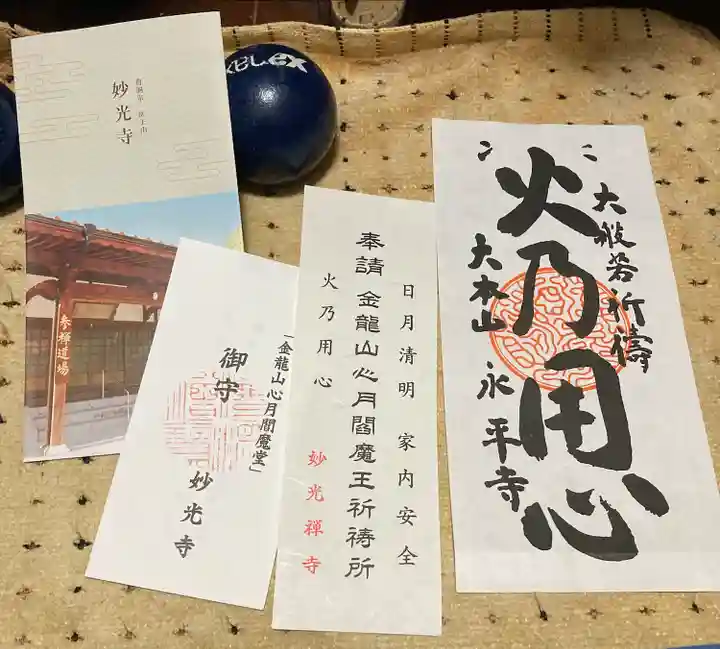 妙光寺
参禅道場
KBLex
「金龍山心月閻魔堂」
御守
妙光寺
日月清明　家内安全
奉請 金龍山心月閻魔王祈祷所
火乃用心
妙光禅寺
大般若祈禱
火乃用心
大本山 永平寺